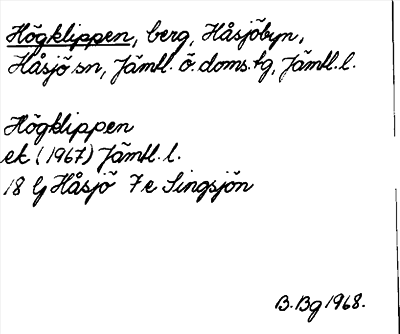 Högklippen, berg, Håsjöbyn,
Håsjö sn, Jämtl. ö. doms. tg, Jämtl. l.
Högklippen
ek (1967) Jämtl. l.
18 G Håsjö 7 e Singsjön
B. Bg 1968.